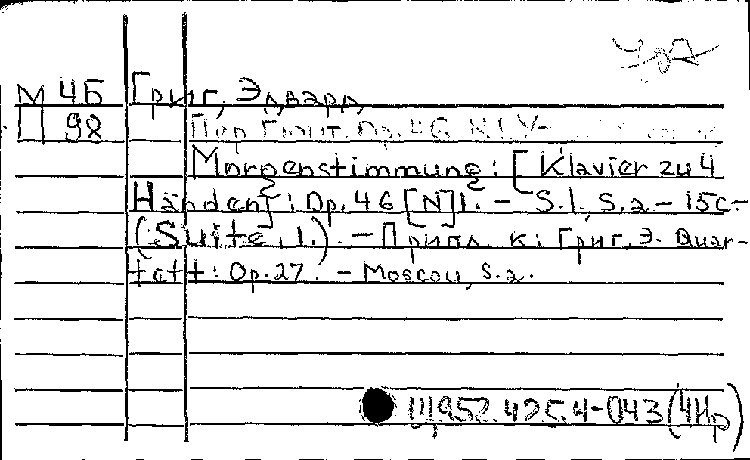 М 4Б Григ, Эдвард
П 98 Пер Гюнт. Op. 46 N 1.
Morgenstimmung: [Klavier zu 4
Händen]: Op. 46 [N] 1. - S. l., S. a. - 15c-
(Suite, 1.) - Припл. к: Григ, Э. Quar-
tett: Op. 27. - Moscou, s. a.
Щ952.425.4-043(4Нр)